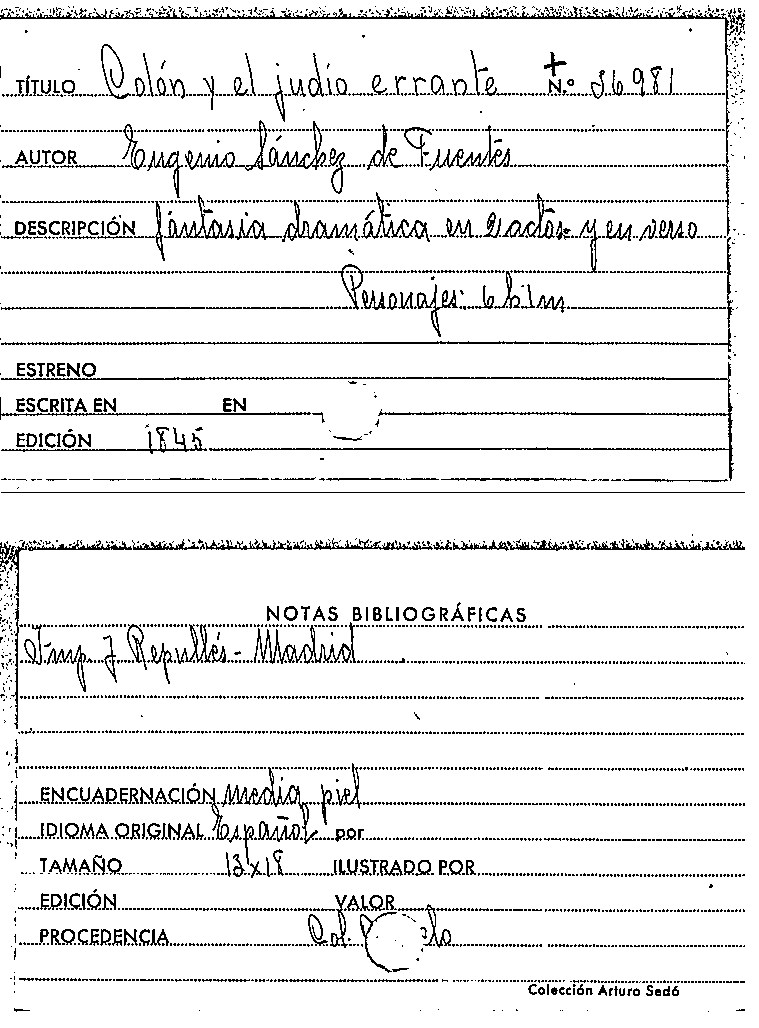 TÍTULO Colón y el judío errante + N.º 36981
AUTOR Eugenio Sánchez de Fuentes
DESCRIPCIÓN fantasia dramática en 2 actos y en verso
Personajes: 6 h 1 m
ESTRENO
ESCRITA EN EN
EDICIÓN 1845
NOTAS BIBLIOGRÁFICAS
Imp. J Repullés - Madrid
ENCUADERNACIÓN media piel
IDIOMA ORIGINAL Español por
TAMAÑO 13x18 ILUSTRADO POR
EDICIÓN VALOR
PROCEDENCIA Col.
Colección Arturo Sedó